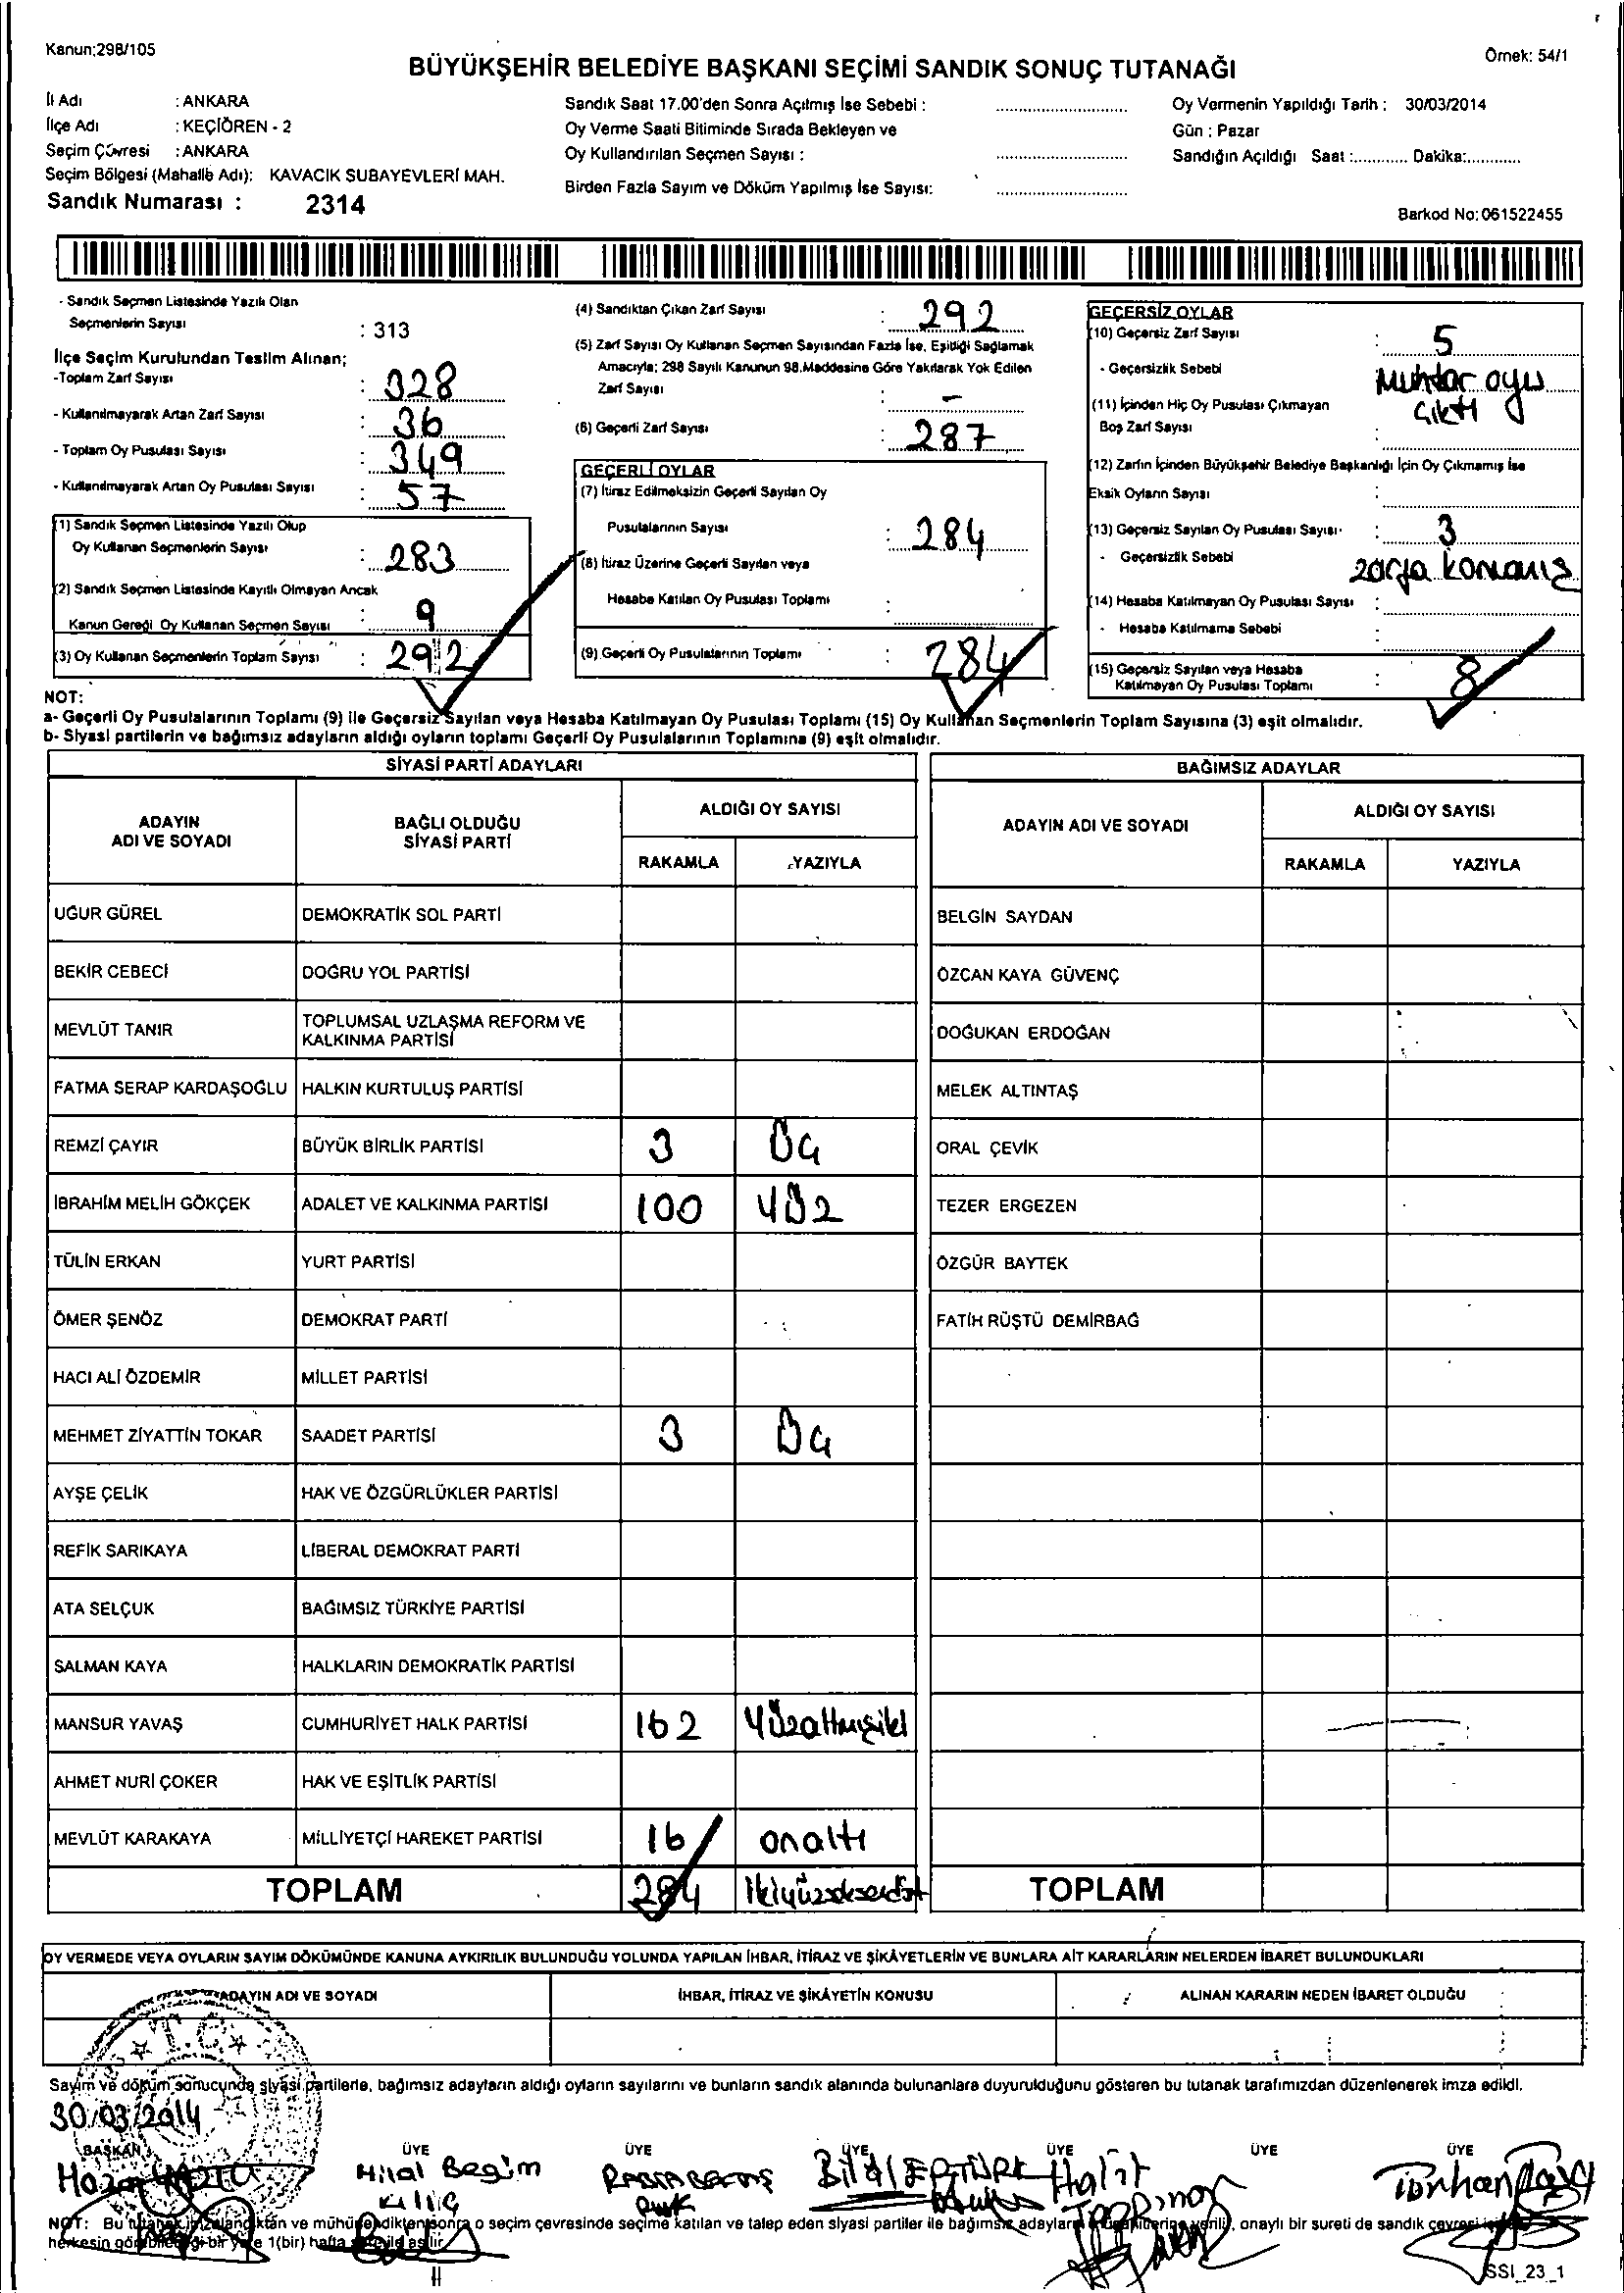 Kanun;298/105
Örnek: 54/1
BÜYÜKŞEHİR BELEDİYE BAŞKANI SEÇİMİ SANDIK SONUÇ TUTANAĞI
İl Adı : ANKARA
İlçe Adı : KEÇİÖREN - 2
Seçim Çevresi : ANKARA
Seçim Bölgesi (Mahalle Adı): KAVACIK SUBAYEVLERİ MAH.
Sandık Numarası : 2314
Sandık Saat 17.00'den Sonra Açılmış İse Sebebi :
Oy Verme Saati Bitiminde Sırada Bekleyen ve
Oy Kullandırılan Seçmen Sayısı :
Birden Fazla Sayım ve Döküm Yapılmış İse Sayısı:
Oy Vermenin Yapıldığı Tarih : 30/03/2014
Gün : Pazar
Sandığın Açıldığı Saat :............ Dakika:............
Barkod No: 061522455
- Sandık Seçmen Listesinde Yazılı Olan
Seçmenlerin Sayısı : 313
İlçe Seçim Kurulundan Teslim Alınan;
-Toplam Zarf Sayısı : 328
- Kullanılmayarak Artan Zarf Sayısı : 36
- Toplam Oy Pusulası Sayısı : 349
- Kullanılmayarak Artan Oy Pusulası Sayısı : 57
(1) Sandık Seçmen Listesinde Yazılı Olup
Oy Kullanan Seçmenlerin Sayısı : 283
(2) Sandık Seçmen Listesinde Kayıtlı Olmayan Ancak
Kanun Gereği Oy Kullanan Seçmen Sayısı : 9
(3) Oy Kullanan Seçmenlerin Toplam Sayısı : 292
(4) Sandıktan Çıkan Zarf Sayısı : 292
(5) Zarf Sayısı Oy Kullanan Seçmen Sayısından Fazla İse, Eşitliği Sağlamak
Amacıyla; 298 Sayılı Kanunun 98.Maddesine Göre Yakılarak Yok Edilen
Zarf Sayısı : -
(6) Geçerli Zarf Sayısı : 287
GEÇERLİ OYLAR
(7) İtiraz Edilmeksizin Geçerli Sayılan Oy
Pusulalarının Sayısı : 284
(8) İtiraz Üzerine Geçerli Sayılan veya
Hesaba Katılan Oy Pusulası Toplamı :
(9) Geçerli Oy Pusulalarının Toplamı : 284
GEÇERSİZ OYLAR
(10) Geçersiz Zarf Sayısı : 5
- Geçersizlik Sebebi Muhtar oyu
çıktı
(11) İçinden Hiç Oy Pusulası Çıkmayan
Boş Zarf Sayısı :
(12) Zarfın İçinden Büyükşehir Belediye Başkanlığı İçin Oy Çıkmamış İse
Eksik Oyların Sayısı :
(13) Geçersiz Sayılan Oy Pusulası Sayısı : 3
- Geçersizlik Sebebi zarfa konmamış
(14) Hesaba Katılmayan Oy Pusulası Sayısı :
- Hesaba Katılmama Sebebi
(15) Geçersiz Sayılan veya Hesaba
Katılmayan Oy Pusulası Toplamı : 8
NOT:
a- Geçerli Oy Pusulalarının Toplamı (9) ile Geçersiz Sayılan veya Hesaba Katılmayan Oy Pusulası Toplamı (15) Oy Kullanan Seçmenlerin Toplam Sayısına (3) eşit olmalıdır.
b- Siyasi partilerin ve bağımsız adayların aldığı oyların toplamı Geçerli Oy Pusulalarının Toplamına (9) eşit olmalıdır.
SİYASİ PARTİ ADAYLARI
ADAYIN ADI VE SOYADI BAĞLI OLDUĞU SİYASİ PARTİ ALDIĞI OY SAYISI
RAKAMLA YAZIYLA
UĞUR GÜREL DEMOKRATİK SOL PARTİ
BEKİR CEBECİ DOĞRU YOL PARTİSİ
MEVLÜT TANIR TOPLUMSAL UZLAŞMA REFORM VE
KALKINMA PARTİSİ
FATMA SERAP KARDAŞOĞLU HALKIN KURTULUŞ PARTİSİ
REMZİ ÇAYIR BÜYÜK BİRLİK PARTİSİ 3 Üç
İBRAHİM MELİH GÖKÇEK ADALET VE KALKINMA PARTİSİ 100 Yüz
TÜLİN ERKAN YURT PARTİSİ
ÖMER ŞENÖZ DEMOKRAT PARTİ
HACI ALİ ÖZDEMİR MİLLET PARTİSİ
MEHMET ZİYATTİN TOKAR SAADET PARTİSİ 3 Üç
AYŞE ÇELİK HAK VE ÖZGÜRLÜKLER PARTİSİ
REFİK SARIKAYA LİBERAL DEMOKRAT PARTİ
ATA SELÇUK BAĞIMSIZ TÜRKİYE PARTİSİ
SALMAN KAYA HALKLARIN DEMOKRATİK PARTİSİ
MANSUR YAVAŞ CUMHURİYET HALK PARTİSİ 162 Yüzaltmışiki
AHMET NURİ ÇOKER HAK VE EŞİTLİK PARTİSİ
MEVLÜT KARAKAYA MİLLİYETÇİ HAREKET PARTİSİ 16 onaltı
TOPLAM 284 İkiyüzseksendört
BAĞIMSIZ ADAYLAR
ADAYIN ADI VE SOYADI ALDIĞI OY SAYISI
RAKAMLA YAZIYLA
BELGİN SAYDAN
ÖZCAN KAYA GÜVENÇ
DOĞUKAN ERDOĞAN
MELEK ALTINTAŞ
ORAL ÇEVİK
TEZER ERGEZEN
ÖZGÜR BAYTEK
FATİH RÜŞTÜ DEMİRBAĞ
TOPLAM
OY VERMEDE VEYA OYLARIN SAYIM DÖKÜMÜNDE KANUNA AYKIRILIK BULUNDUĞU YOLUNDA YAPILAN İHBAR, İTİRAZ VE ŞİKÂYETLERİN VE BUNLARA AİT KARARLARIN NELERDEN İBARET BULUNDUKLARI
ADAYIN ADI VE SOYADI İHBAR, İTİRAZ VE ŞİKÂYETİN KONUSU ALINAN KARARIN NEDEN İBARET OLDUĞU
T.C.
Sayım ve döküm sonucunda siyasi partilerle, bağımsız adayların aldığı oyların sayılarını ve bunların sandık alanında bulunanlara duyurulduğunu gösteren bu tutanak tarafımızdan düzenlenerek imza edildi.
30/03/2014
BAŞKAN ÜYE ÜYE ÜYE ÜYE ÜYE ÜYE
Hilal Begüm BİLAL ERTÜRK Halit Turhan
Kılıç
NOT: Bu tutanak imzalandıktan ve mühürlendikten sonra o seçim çevresinde seçime katılan ve talep eden siyasi partiler ile bağımsız adayların müşahitlerine verilir, onaylı bir sureti de sandık çevresi
herkesin görebileceği bir yere 1(bir) hafta süre ile asılır.
SSI_23_1